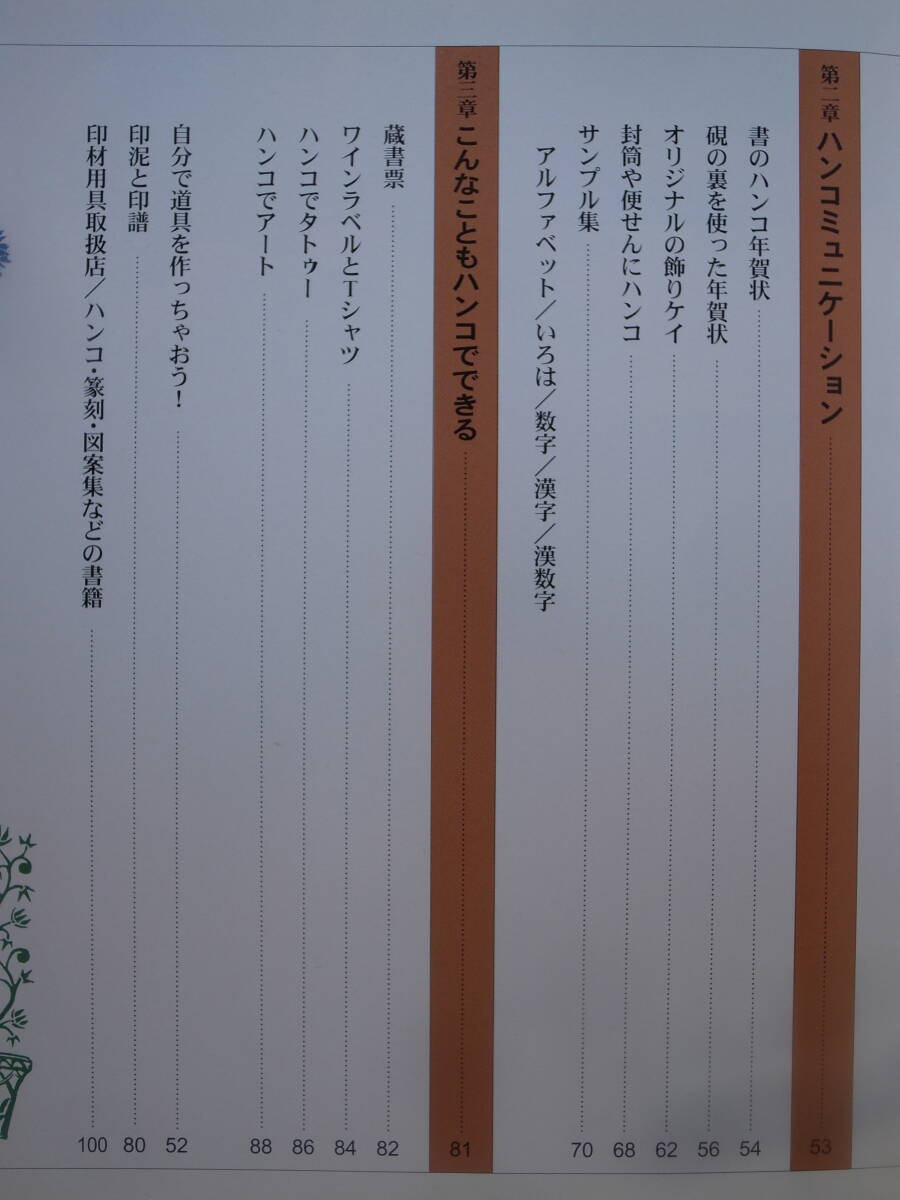 第二章 ハンコミュニケーション 53
書のハンコ年賀状 54
硯の裏を使った年賀状 56
オリジナルの飾りケイ 62
封筒や便せんにハンコ 68
サンプル集 70
アルファベット／いろは／数字／漢字／漢数字
第三章 こんなこともハンコでできる 81
蔵書票 82
ワインラベルとTシャツ 84
ハンコでタトゥー 86
ハンコでアート 88
自分で道具を作っちゃおう！ 52
印泥と印譜 80
印材用具取扱店／ハンコ・篆刻・図案集などの書籍 100